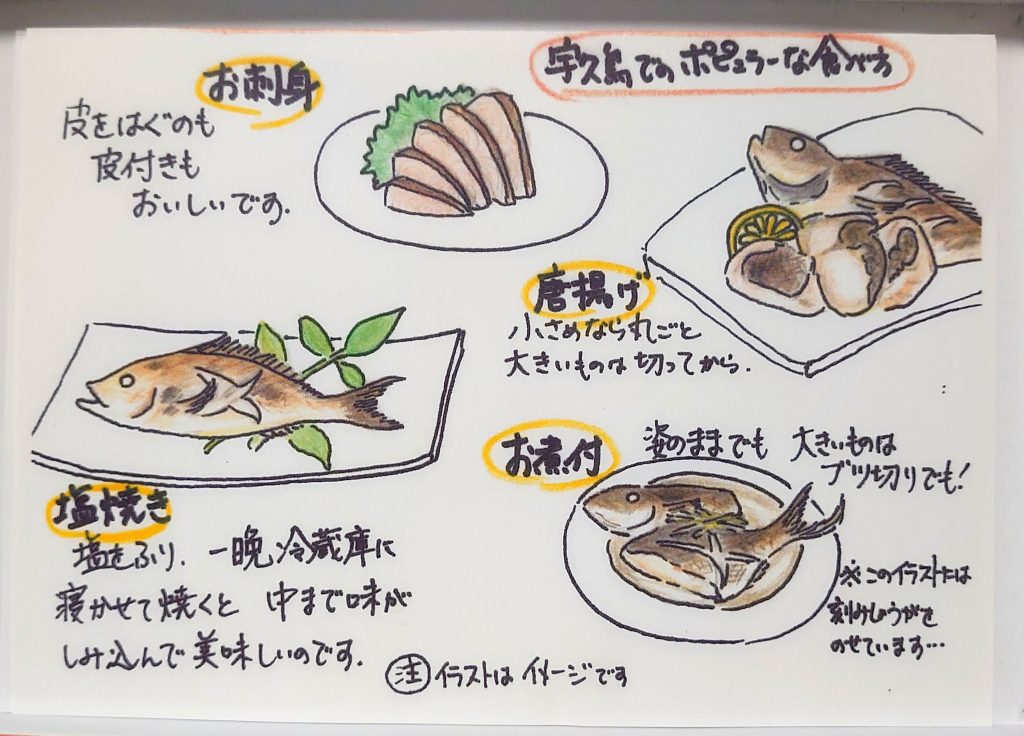 宇久島でのポピュラーな食べ方
お刺身
皮をはぐのも
皮付きも
おいしいです.
唐揚げ
小さめなら丸ごと
大きいものは切ってから.
塩焼き
塩をふり、一晩冷蔵庫に
寝かせて焼くと 中まで味が
しみ込んで美味しいのです.
お煮付
姿のままでも 大きいものは
ブツ切りでも!
※このイラストには
刻みしょうがを
のせています…
注 イラストはイメージです